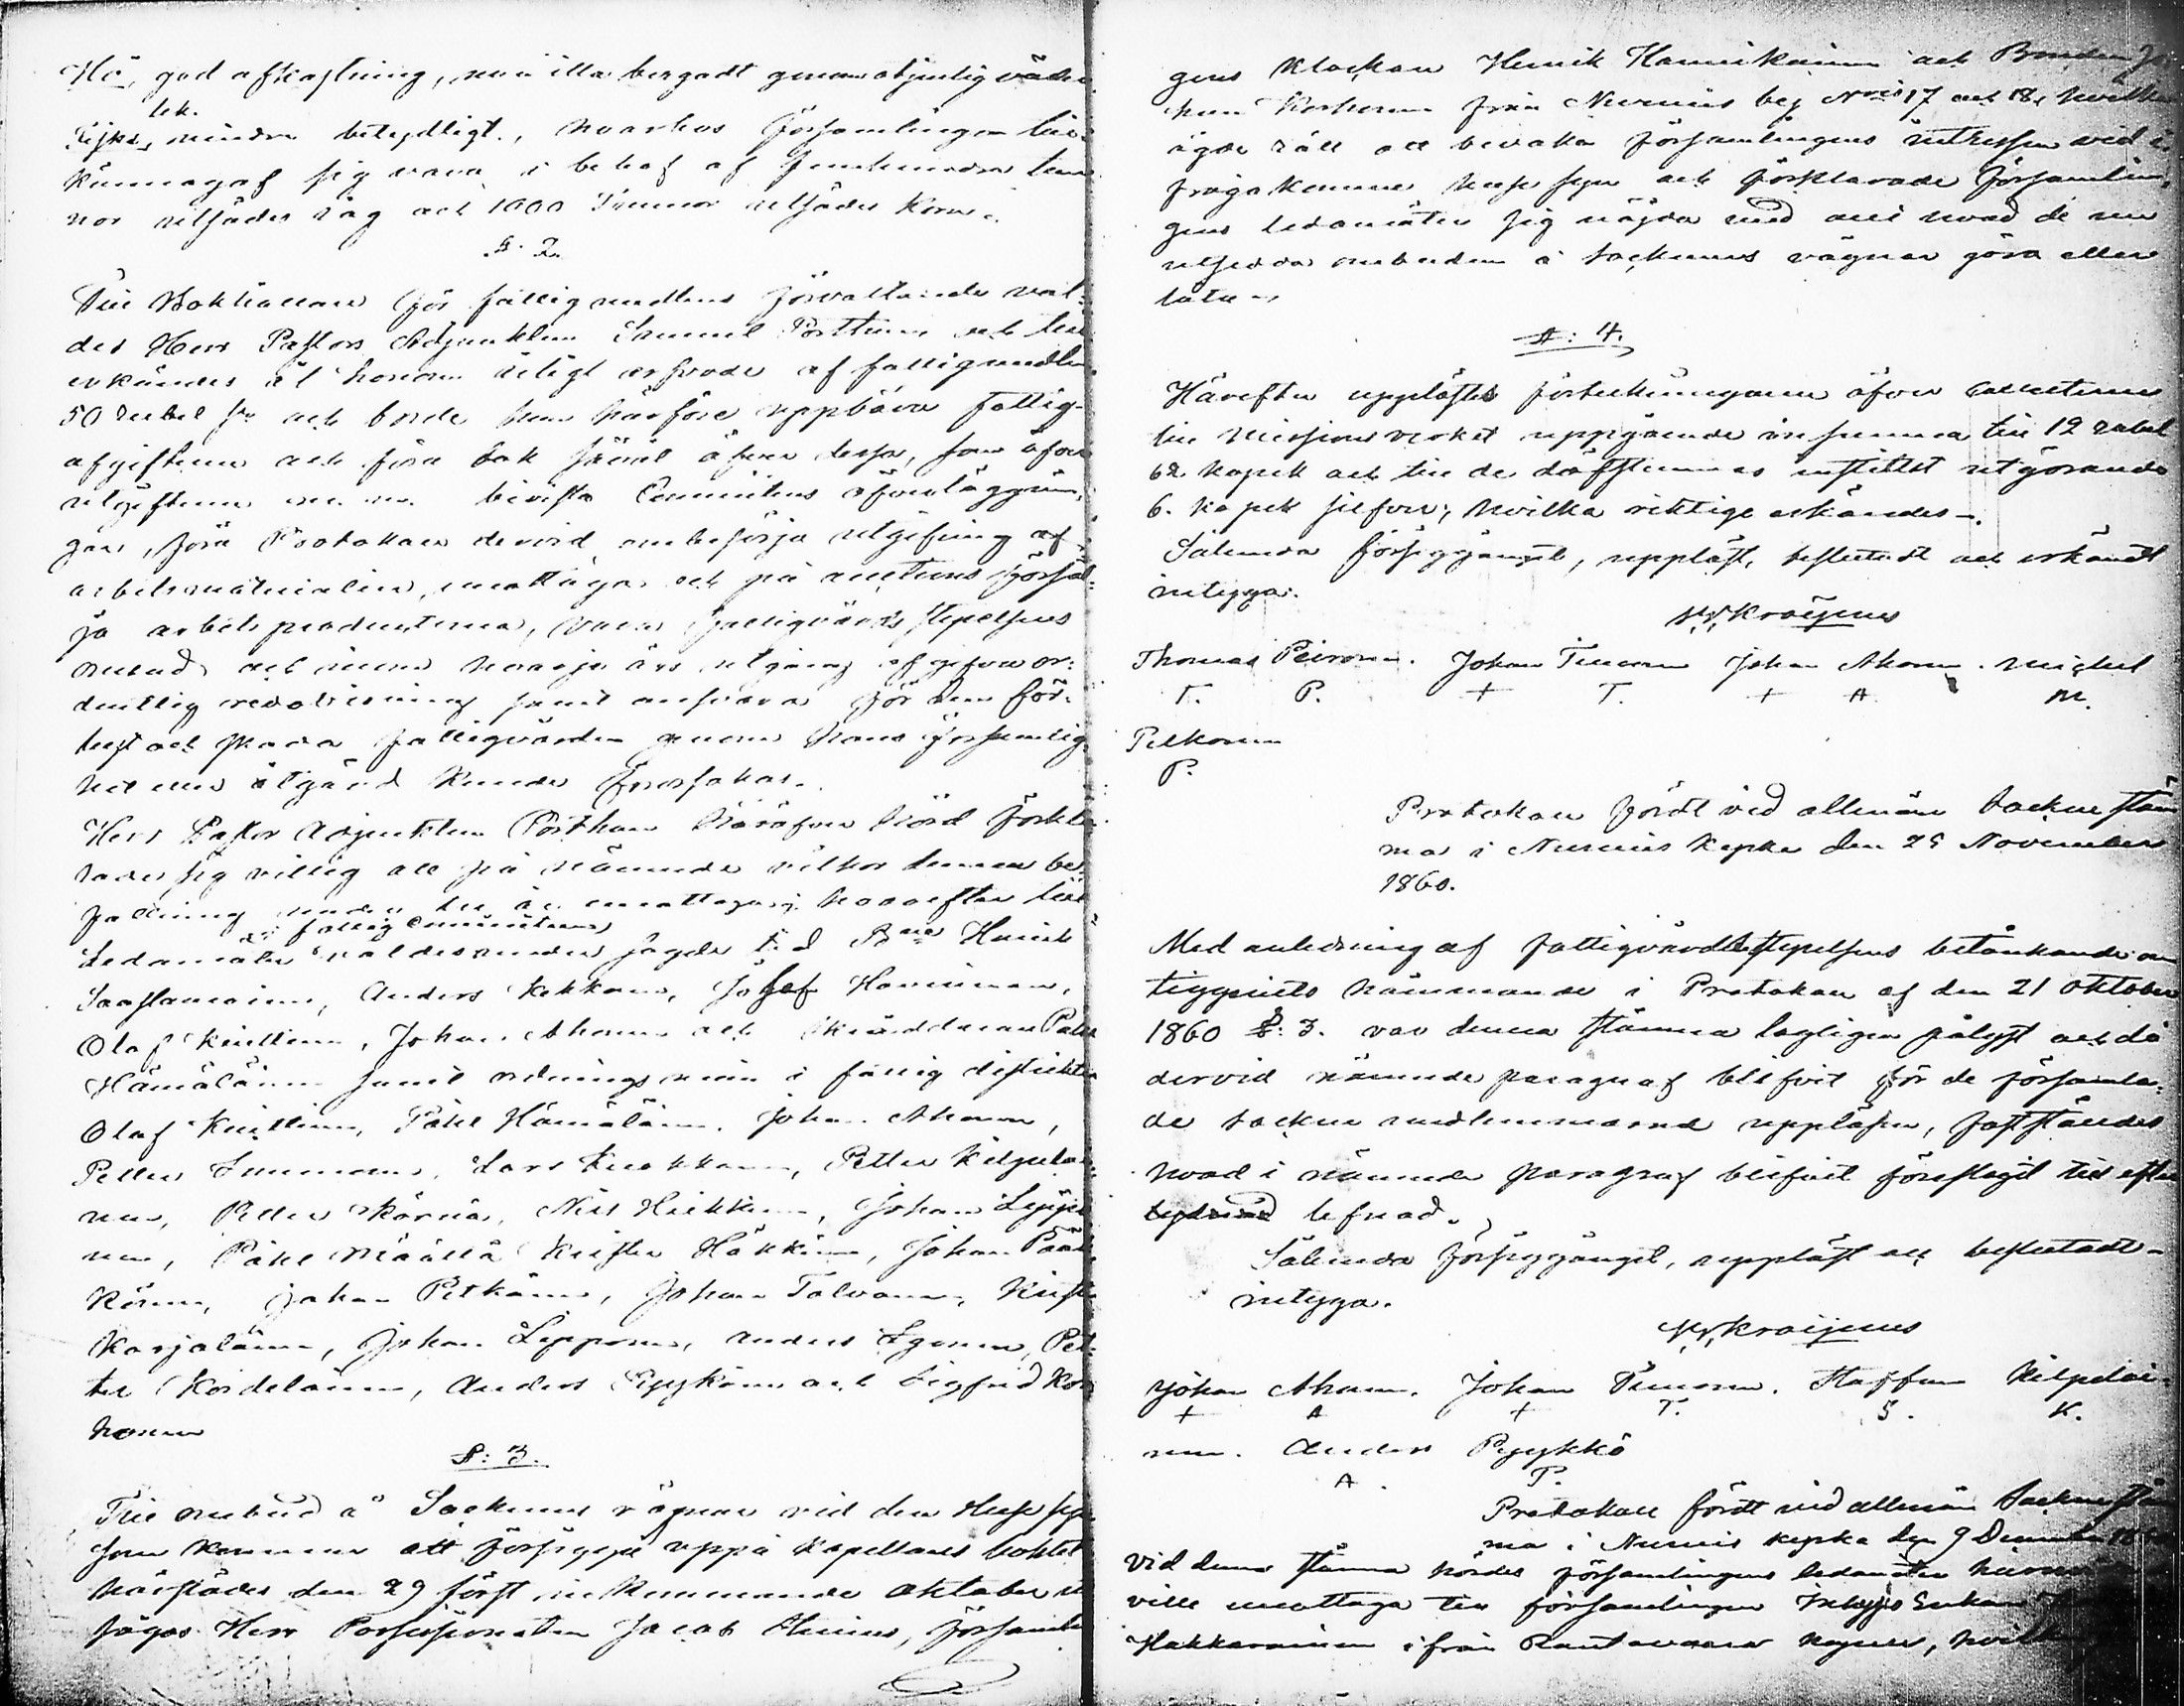 Hö, god afkastning, men illa bergadt genom otjenlig väder
lek.
Fiske, mindre betydligt, hvarhos församlingen till
kännagaf sig vara i behof af femhundra tun
nor utsädes råg och 1000 Tunnor utsädes Korn.
§. 2.
Till Bokhållare för fattigmedlens förvaltande val-
des Herr Pastors Adjunkten Samuel Porthan och till
erkändes åt honom årligt arfvode af fattigmedlen
50 rubel Sr och borde han härföre uppbära fattig-
afgifterna och föra bok såväl öfver dessa, som öfver
utgifterna m.m. bevista Committéns öfverläggnin-
gar, föra Protokoll dervid ombesörja utgifning af
arbetsmaterialier, emottaga och på auctions försäl-
ja arbetsprodukterna, vara fattigvårds styrelsens
ombud och inom hvarje års utgång afgifva or-
dentlig redovisning samt ansvara för den för-
lust och skada fattigvården genom hans försumlig
het eller åtgärd kunde förorsakas.
Herr Pastor Adjunkten Porthan häröfver hörd förkla
rade sig villig att på nämnde vilkor denna be
fattning under tre år emottaga; hvarefter till
i fattig Committéen
Ledamöter valdes under sagde tid Bne Henrik
Saastamoinen, Anders Kekkonen, Josef Hanninen,
Olaf Kinttinen, Johan Ahonen och Nämndeman Påhl
Hämäläinen samt ordningsmän i fattig distrikten
Olaf Kinttinen, Påhl Hämäläinen, Johan Ahonen,
Petter Immonen, Lars Kuokkanen, Petter Kilpeläi
nen, Petter Kärnä, Nils Heikkinen, Johan Leppi
nen, Påhl Määttä Krister Häkkinen, Johan Pääk
könen, Johan Pitkänen, Johan Tolvanen, Krister
Karjalainen, Johan Lipponen, Anders Lyonen, Pet-
ter Kordelainen, Anders Pyykönen och Sigfrid Kor
honen
§: 3.
Till ombud å Socknens vägnar vid den Husesyn
som kommer att försiggå uppå Kapellans bohlet
härstädes den 29 först inkommande Oktober ut
sågos Herr Possessionaten Jacob Thenius, församlin
gens Klockare Henrik Hannikainen och Bonden Jo
han Korhonen från Nurmis by Nris 17 och 18, hvilka
ägde rätt att bevaka församlingens intressen vid i
fråga komne husesyn och förklarade församlin-
gens ledamöter sig nöjda med allt hvad de nu
utsedda ombuden å Socknens vägnar göra eller
låta.
§: 4.
Härefter upplästes förteckningarne öfver collecterna
till Missions verket uppgående en summa till 12 rubel
62 kopek och till de döfstummas institut utgörande
6. kopek silfver, hvilka riktige erkändes.
Sålunda försiggånget, uppläst, beslutadt och erkändt
intyga.
Kraijenus
Thomas Peiponen. Johan Timonen Johan Ahonen. Michel
T. P. + T. + A M.
Pelkonen
P.
Protokoll fördt vid allmän Sockne stäm
ma i Nurmis Kyrka den 25 November
1860.
Med anledning af fattigvårdsstyrelsens betänkande om
tiggeriets hämmande i Protokoll af den 21 Oktober
1860 §: 3. var denna stämma lagligen pålyst och då
dervid nämnde paragraf blifvit för de församla-
de sockne medlemmarne uppläsen, fastställdes
hvad i nämnde paragraf blifvit föreslagit till efter
lefnad.
Sålunda försiggånget, uppläst och beslutadt
intyga.
Kraijenus
Johan Ahonen. Johan Timonen. Staffan Kilpeläi-
+ A + T. S. K.
nen. Anders Pyykkö
A. P.
Protokoll fördt vid allmän Sockne stäm
ma i Nurmis kyrka den 9 December
Vid denna stämma hördes församlingens ledamöter
ville emottaga till församlingen Inhyses Enkan
Hakkarainen ifrån Rautavaara kapell,